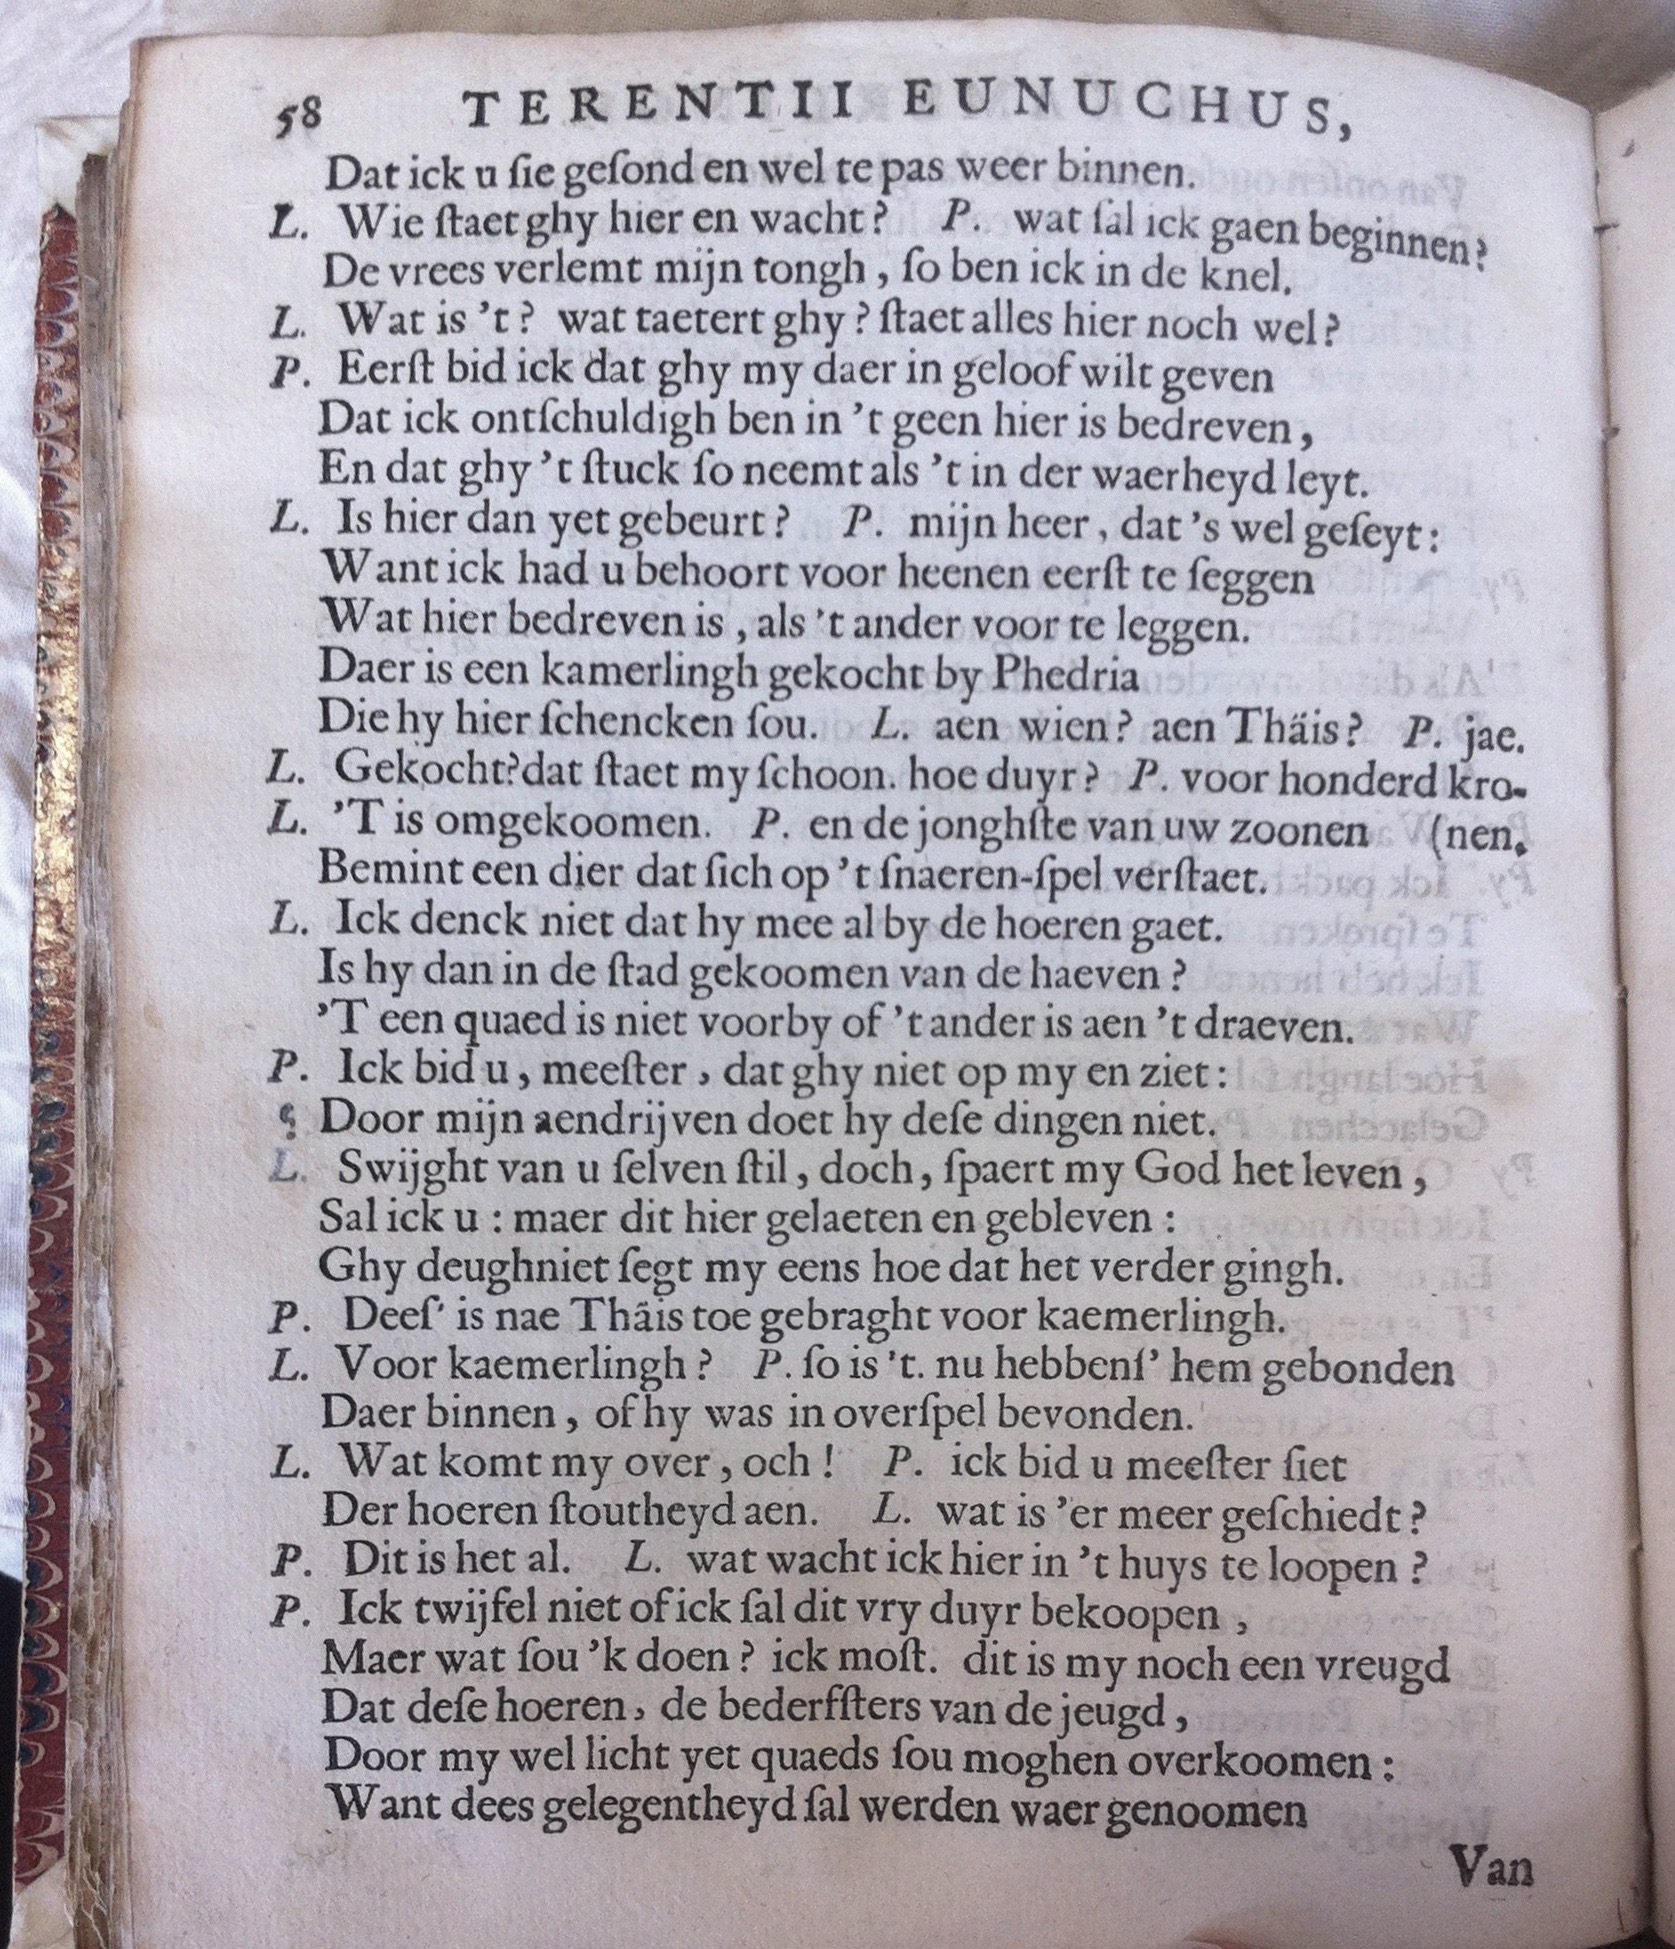 58 TERENTII EUNUCHUS,
Dat ick u ſie geſond en wel te pas weer binnen.
L. Wie ſtaet ghy hier en wacht? P. wat ſal ick gaen beginnen?
De vrees verlemt mijn tongh, ſo ben ick in de knel.
L. Wat is 't? wat taetert ghy? ſtaet alles hier noch wel?
P. Eerſt bid ick dat ghy my daer in geloof wilt geven
Dat ick ontſchuldigh ben in 't geen hier is bedreven,
En dat ghy 't ſtuck ſo neemt als 't in der waerheyd leyt.
L. Is hier dan yet gebeurt? P. mijn heer, dat 's wel geſeyt:
Want ick had u behoort voor heenen eerſt te ſeggen
Wat hier bedreven is, als 't ander voor te leggen.
Daer is een kamerlingh gekocht by Phedria
Die hy hier ſchencken ſou. L. aen wien? aen Thäis? P. jae.
L. Gekocht? dat ſtaet my ſchoon. hoe duyr? P. voor honderd kro-
L. 'T is omgekoomen. P. en de jonghſte van uw zoonen (nen.
Bemint een dier dat ſich op 't ſnaeren-ſpel verſtaet.
L. Ick denck niet dat hy mee al by de hoeren gaet.
Is hy dan in de ſtad gekoomen van de haeven?
'T een quaed is niet voorby of 't ander is aen 't draeven.
P. Ick bid u, meeſter, dat ghy niet op my en ziet:
Door mijn aendrijven doet hy deſe dingen niet.
L. Swijght van u ſelven ſtil, doch, ſpaert my God het leven,
Sal ick u: maer dit hier gelaeten en gebleven:
Ghy deughniet ſegt my eens hoe dat het verder gingh.
P. Deeſ' is nae Thäis toe gebraght voor kaemerlingh.
L. Voor kaemerlingh? P. ſo is 't. nu hebbenſ' hem gebonden
Daer binnen, of hy was in overſpel bevonden.
L. Wat komt my over, och! P. ick bid u meeſter ſiet
Der hoeren ſtoutheyd aen. L. wat is 'er meer geſchiedt?
P. Dit is het al. L. wat wacht ick hier in 't huys te loopen?
P. Ick twijfel niet of ick ſal dit vry duyr bekoopen,
Maer wat ſou 'k doen? ick moſt. dit is my noch een vreugd
Dat deſe hoeren, de bederfſters van de jeugd,
Door my wel licht yet quaeds ſou moghen overkoomen:
Want dees gelegentheyd ſal werden waer genoomen
Van